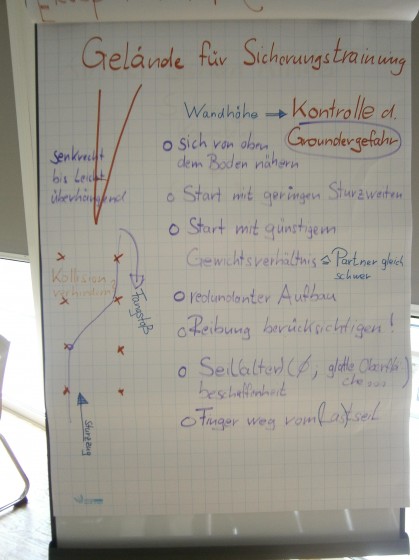 Gelände für Sicherungstraining
Wandhöhe → Kontrolle d.
Groundergefahr
senkrecht
bis leicht
überhängend
sich von oben
dem Boden nähern
Start mit geringen Sturzweiten
Start mit günstigem
Gewichtsverhältnis ⇒ Partner gleich
schwer
Kollision
verhindern
Fangstoß
redundanter Aufbau
Reibung berücksichtigen!
Seil(alter) (Ø, glatte Oberflä
che ....)
beschaffenheit
Finger weg vom Lastseil
Sturzzug